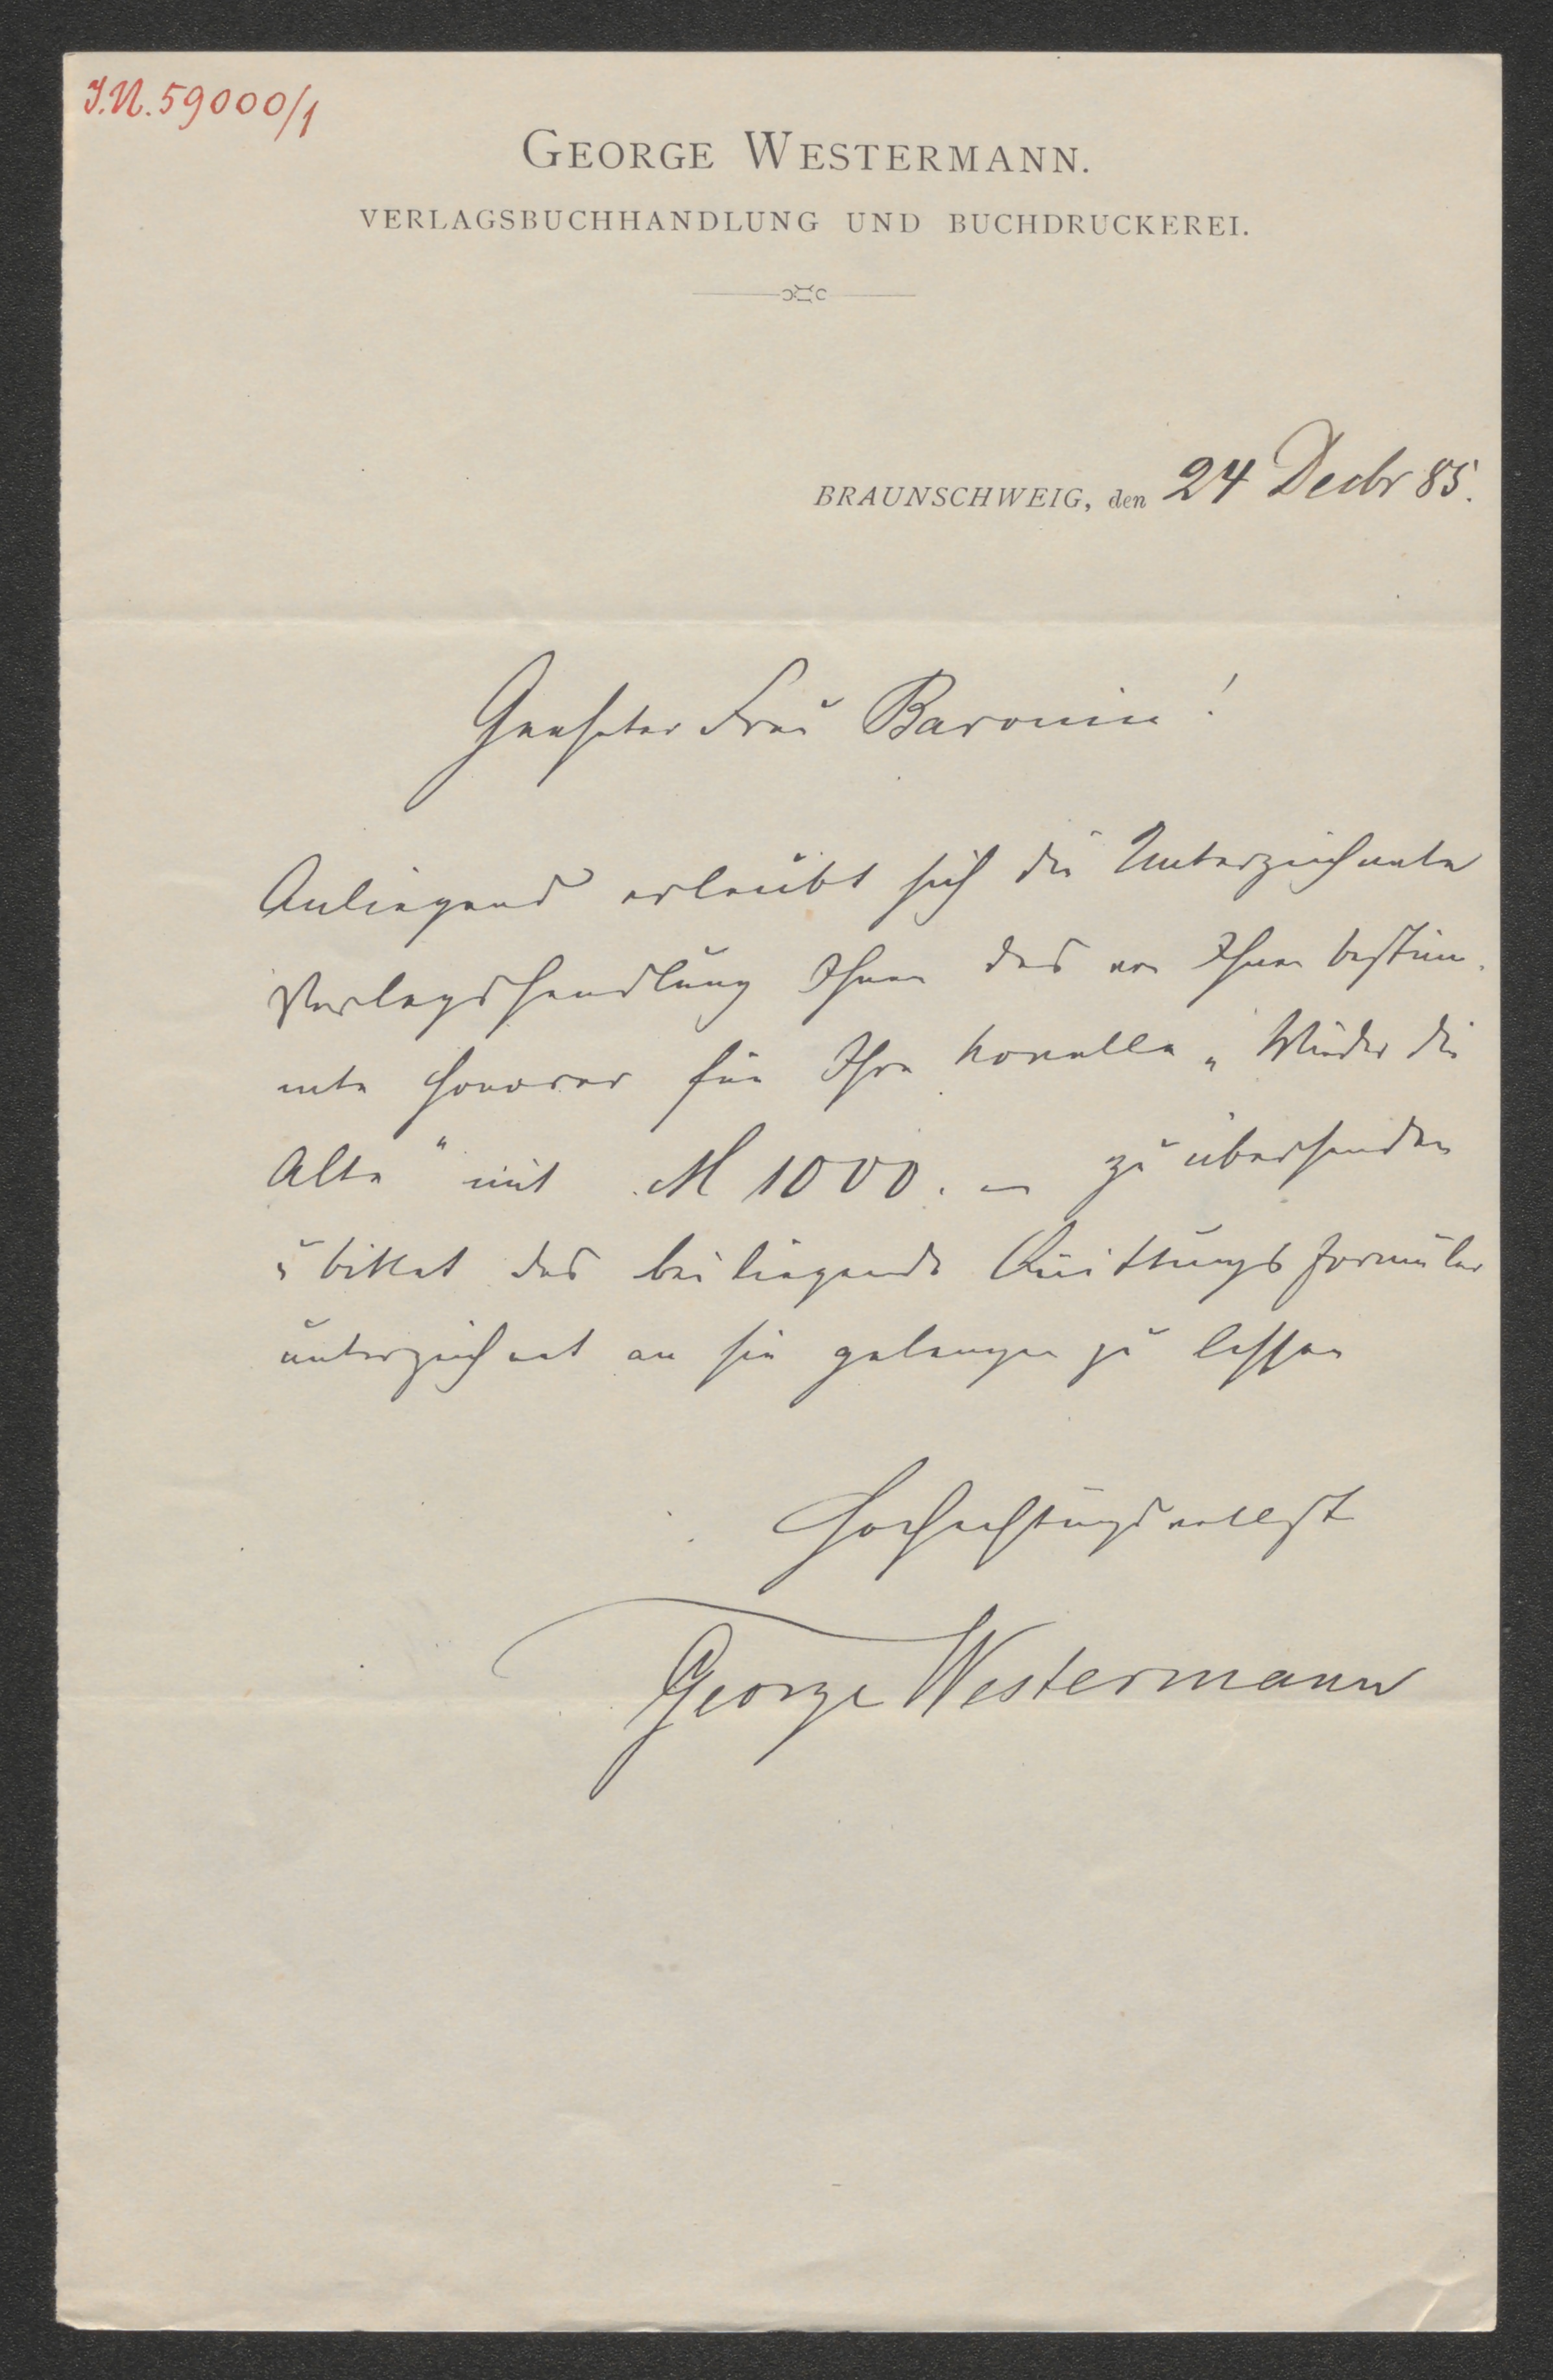 J.N. 59000/1
GEORGE WESTERMANN.
VERLAGSBUCHHANDLUNG UND BUCHDRUCKEREI.
BRAUNSCHWEIG, den 24 Decbr 85.
Geehrter Frau Baronin!
Anliegend erlaubt sich die Unterzeichnete
Verlagshandlung Ihnen das von Ihnen bestim-
mte Honorar für Ihre Novelle „Wieder die
Alte" mit M 1000.– zu übersenden
u bittet das beiliegende Quittungsformular
unterzeichnet an sie gelangen zu lassen
Hochachtungsvollst
George Westermann